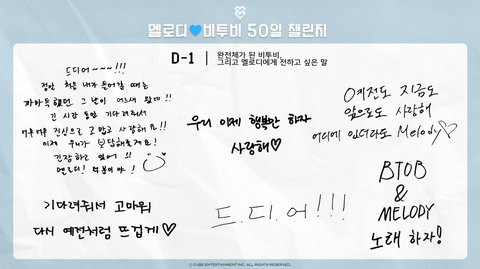 멜로디💙비투비 50일 챌린지
D-1
완전체가 된 비투비,
그리고 멜로디에게 전하고 싶은 말
드디어~~~!!!
정말 처음 내가 들어갈 때는
까마득했던 그 날이 어느새 왔네!!
긴 시간 동안 기다려줘서
너무너무 진심으로 고맙고 사랑해요!!
이제 우리가 보답해줄게요!
긴장하고 있어!!
멜로디! 덕분이야!
우리 이제 행복만 하자
사랑해♡
예전도 지금도
앞으로도 사랑해
어디에 있더라도 Melody♡
기다려줘서 고마워
다시 예전처럼 뜨겁게♡
드.디.어!!!
BTOB
&
MELODY
노래 하자!
© CUBE ENTERTAINMENT INC. ALL RIGHTS RESERVED.